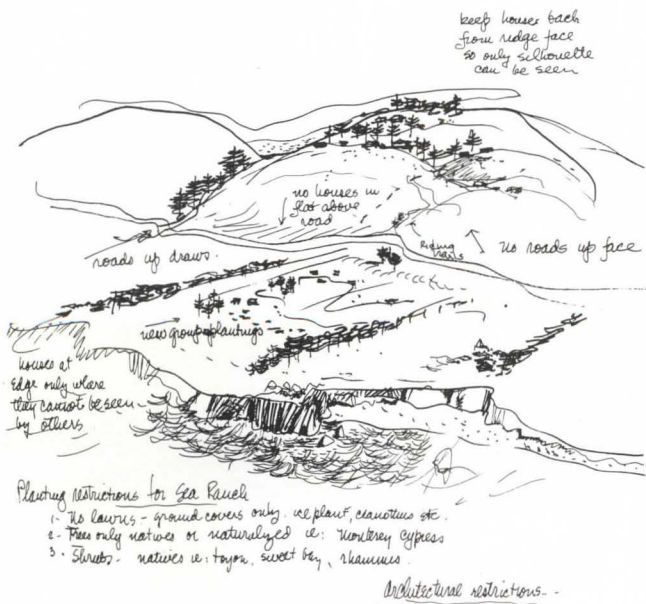 keep houses back
from ridge face
so only silhouette
can be seen
no houses in
flat above
road
riding
trails
no roads up face
roads up draws.
new group plantings
houses at
edge only where
they cannot be seen
by others
Planting restrictions for Sea Ranch
1- No lawns - ground covers only. ice plant, ceanothus etc.
2- Trees only natives or naturalized ie: Monterey cypress
3- Shrubs - natives ie: toyon, sweet bay, rhamnus.
architectural restrictions--